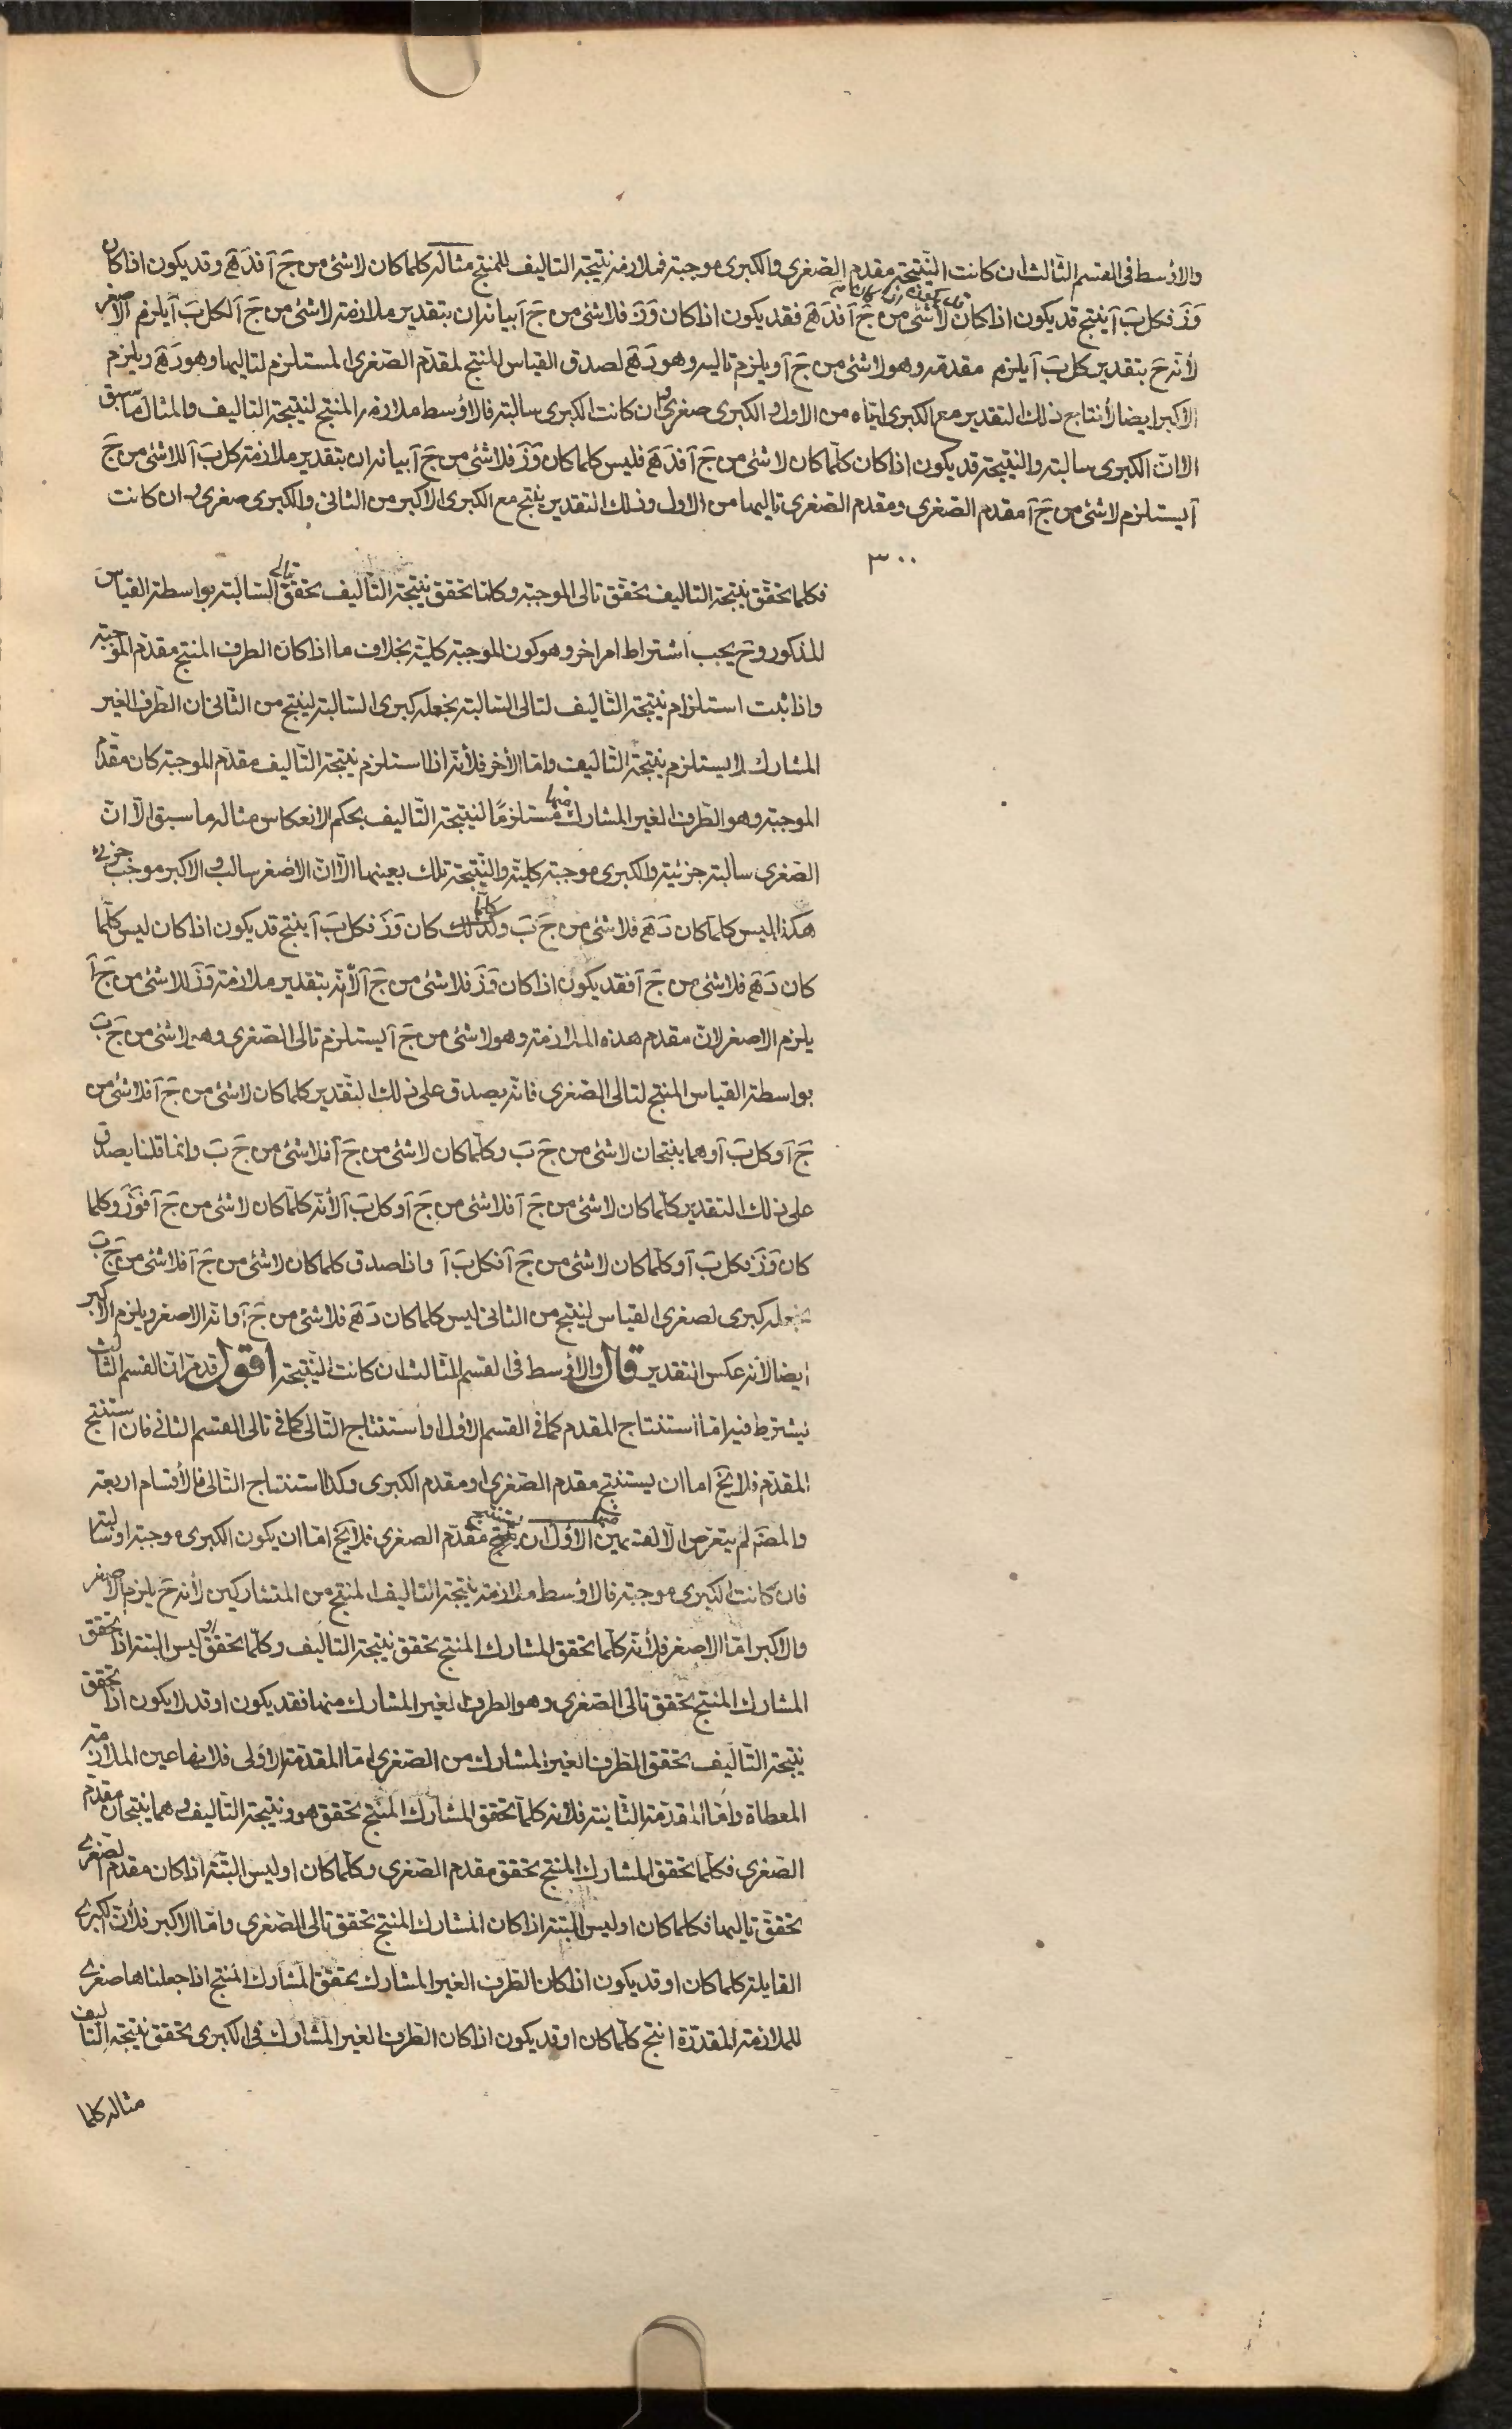 والاوسط فى القسم الثالث ان كانت النتيجة مقدم الصغرى والكبرى موجبة فملازمة نتيجة التاليف للمنتج مثاله كلما كان لا شئ من جَ آ فدَ هَ وقد يكون اذا كان
وَزَ فكل بَ آ ينتج قد يكون اذا كان لا شئ من جَ آ فدَ هَ فقد يكون اذا كان وَزَ فلا شئ من جَ آ بيانه ان بتقدير ملازمة لا شئ من جَ آ لكل بَ آ يلزم الاصغر
لأنه حَ بتقدير كل بَ آ يلزم مقدمه وهو لا شئ من جَ آ ويلزم تاليه وهو دَ هَ لصدق القياس المنتج لمقدم الصغرى المستلزم لتاليها وهو دَ هَ ويلزم
الاكبر ايضا لأنتاج ذلك التقدير مع الكبرى اياه من الاول والكبرى صغرى وان كانت الكبرى سالبة فالاوسط ملازمة المنتج لنتيجة التاليف والمثال ما سبق
الا ان الكبرى سالبة والنتيجة قد يكون اذا كان كلما كان لا شئ من جَ آ فدَ هَ فليس كلما كان وَزَ فلا شئ من جَ آ بيانه ان بتقدير ملازمة كل بَ آ للاشئ من جَ
آ يستلزم لا شئ من جَ آ مقدم الصغرى ومقدم الصغرى تاليها من الاول وذلك التقدير ينتج مع الكبرى الاكبر من الثانى والكبرى صغرى وان كانت
٣٠٠
فكلما تحقق نتيجة التاليف تحقق تالى الموجبة وكلما تحقق نتيجة التاليف تحقق تالى السالبة بواسطة القياس
المذكور وحَ يجب اشتراط امر اخر وهو كون الموجبة كلية بخلاف ما اذا كان الطرف المنتج مقدم الموجبة
واذا ثبت استلزام نتيجة التاليف لتالى السالبة بجعله كبرى السالبة لينتج من الثانى ان الطرف الغير
المشارك لا يستلزم نتيجة التاليف واما الأخر فلأنه اذا استلزم نتيجة التاليف مقدم الموجبة كان مقدم
الموجبة وهو الطرف الغير المشارك منها مستلزمًا لنتيجة التاليف بحكم الانعكاس مثاله ما سبق الا ان
الصغرى سالبة جزئية والكبرى موجبة كلية والنتيجة تلك بعينها الا ان الاصغر سالب والاكبر موجب جزئى
هكذا ليس كلما كان دَ هَ فلا شئ من جَ بَ وكلما كان وَزَ فكل بَ آ ينتج قد يكون اذا كان ليس كلما
كان دَ هَ فلا شئ من جَ آ فقد يكون اذا كان وَزَ فلا شئ من جَ آ لأنه بتقدير ملازمة وَزَ للاشئ من جَ آ
يلزم الاصغر لان مقدم هذه الملازمة وهو لا شئ من جَ آ يستلزم تالى الصغرى وهو لا شئ من جَ بَ
بواسطة القياس المنتج لتالى الصغرى فانه يصدق على ذلك التقدير كلما كان لا شئ من جَ آ فلا شئ من
جَ آ وكل بَ آ وهما ينتجان لا شئ من جَ بَ وكلما كان لا شئ من جَ آ فلا شئ من جَ بَ وانما قلنا يصدق
على ذلك التقدير كلما كان لا شئ من جَ آ فلا شئ من جَ آ وكل بَ آ لأنه كلما كان لا شئ من جَ آ فوَزَ وكلما
كان وَزَ فكل بَ آ وكلما كان لا شئ من جَ آ فكل بَ آ واذا صدق كلما كان لا شئ من جَ آ فلا شئ من جَ بَ
نجعله كبرى لصغرى القياس لينتج من الثانى ليس كلما كان دَ هَ فلا شئ من جَ آ وانه الاصغر ويلزم الاكبر
ايضا لأنه عكس التقدير قال والاوسط فى القسم الثالث ان كانت النتيجة اقول قد مر ان القسم الثالث
يشترط فيه اما استنتاج المقدم كما فى القسم الاول او استنتاج التالى كما فى تالى القسم الثانى فان استنتج
المقدم فلا يخ اما ان يستنتج مقدم الصغرى او مقدم الكبرى وكذا استنتاج التالى فالأقسام اربعة
والمصَ لم يتعرض الا لقسمين منها الاول ان يستنتج مقدم الصغرى فلا يخ اما ان يكون الكبرى موجبة او سالبة
فان كانت الكبرى موجبة فالاوسط ملازمة نتيجة التاليف المنتج من المتشاركين لأنه حَ يلزم الاصغر
والاكبر اما الاصغر فلأنه كلما تحقق المشارك المنتج تحقق نتيجة التاليف وكلما تحقق او ليس البتة اذا تحقق
المشارك المنتج تحقق تالى الصغرى وهو الطرف الغير المشارك منها فقد يكون او قد لا يكون اذا تحقق
نتيجة التاليف تحقق الطرف الغير المشارك من الصغرى اما المقدمة الاولى فلانها عين الملازمة
المعطاة واما المقدمة الثانية فلانه كلما تحقق المشارك المنتج تحقق هو ونتيجة التاليف وهما ينتجان مقدم
الصغرى فكلما تحقق المشارك المنتج تحقق مقدم الصغرى وكلما كان او ليس البتة اذا كان مقدم الصغرى
تحقق تاليها فكلما كان او ليس البتة اذا كان المشارك المنتج تحقق تالى الصغرى واما الاكبر فلأن الكبرى
القايلة كلما كان او قد يكون اذا كان الطرف الغير المشارك تحقق المشارك المنتج اذا جعلناها صغرى
للملازمة المقدرة انتج كلما كان او قد يكون اذا كان الطرف الغير المشارك فى الكبرى تحقق نتيجة التاليف
مثاله كلما